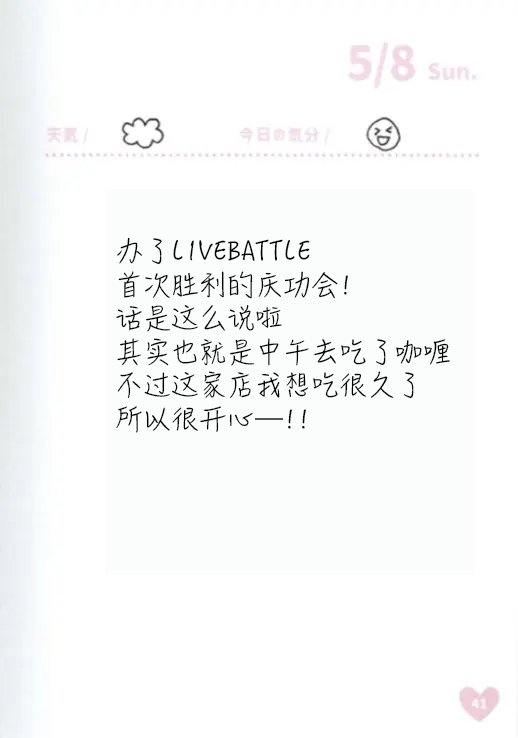 5/8 Sun.
天気/ 今日の気分/
办了LIVEBATTLE
首次胜利的庆功会!
话是这么说啦
其实也就是中午去吃了咖喱
不过这家店我想吃很久了
所以很开心—!!
41